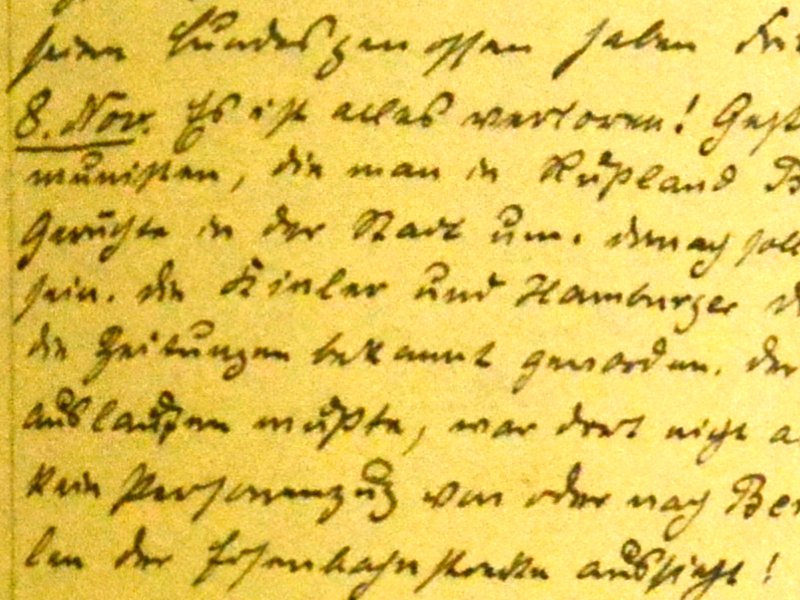 seiner Bundesgenossen haben
8. Nov. Es ist alles verloren! Gest
munisten, die man in Rußland B
Gerüchte in der Stadt um. danach soll
sein. die Kieler und Hamburger
die Zeitungen bekannt geworden. der
auslaufen mußte, war dort nicht a
kein Personenzug von oder nach Ber
len der Eisenbahnstrecke aussieht!